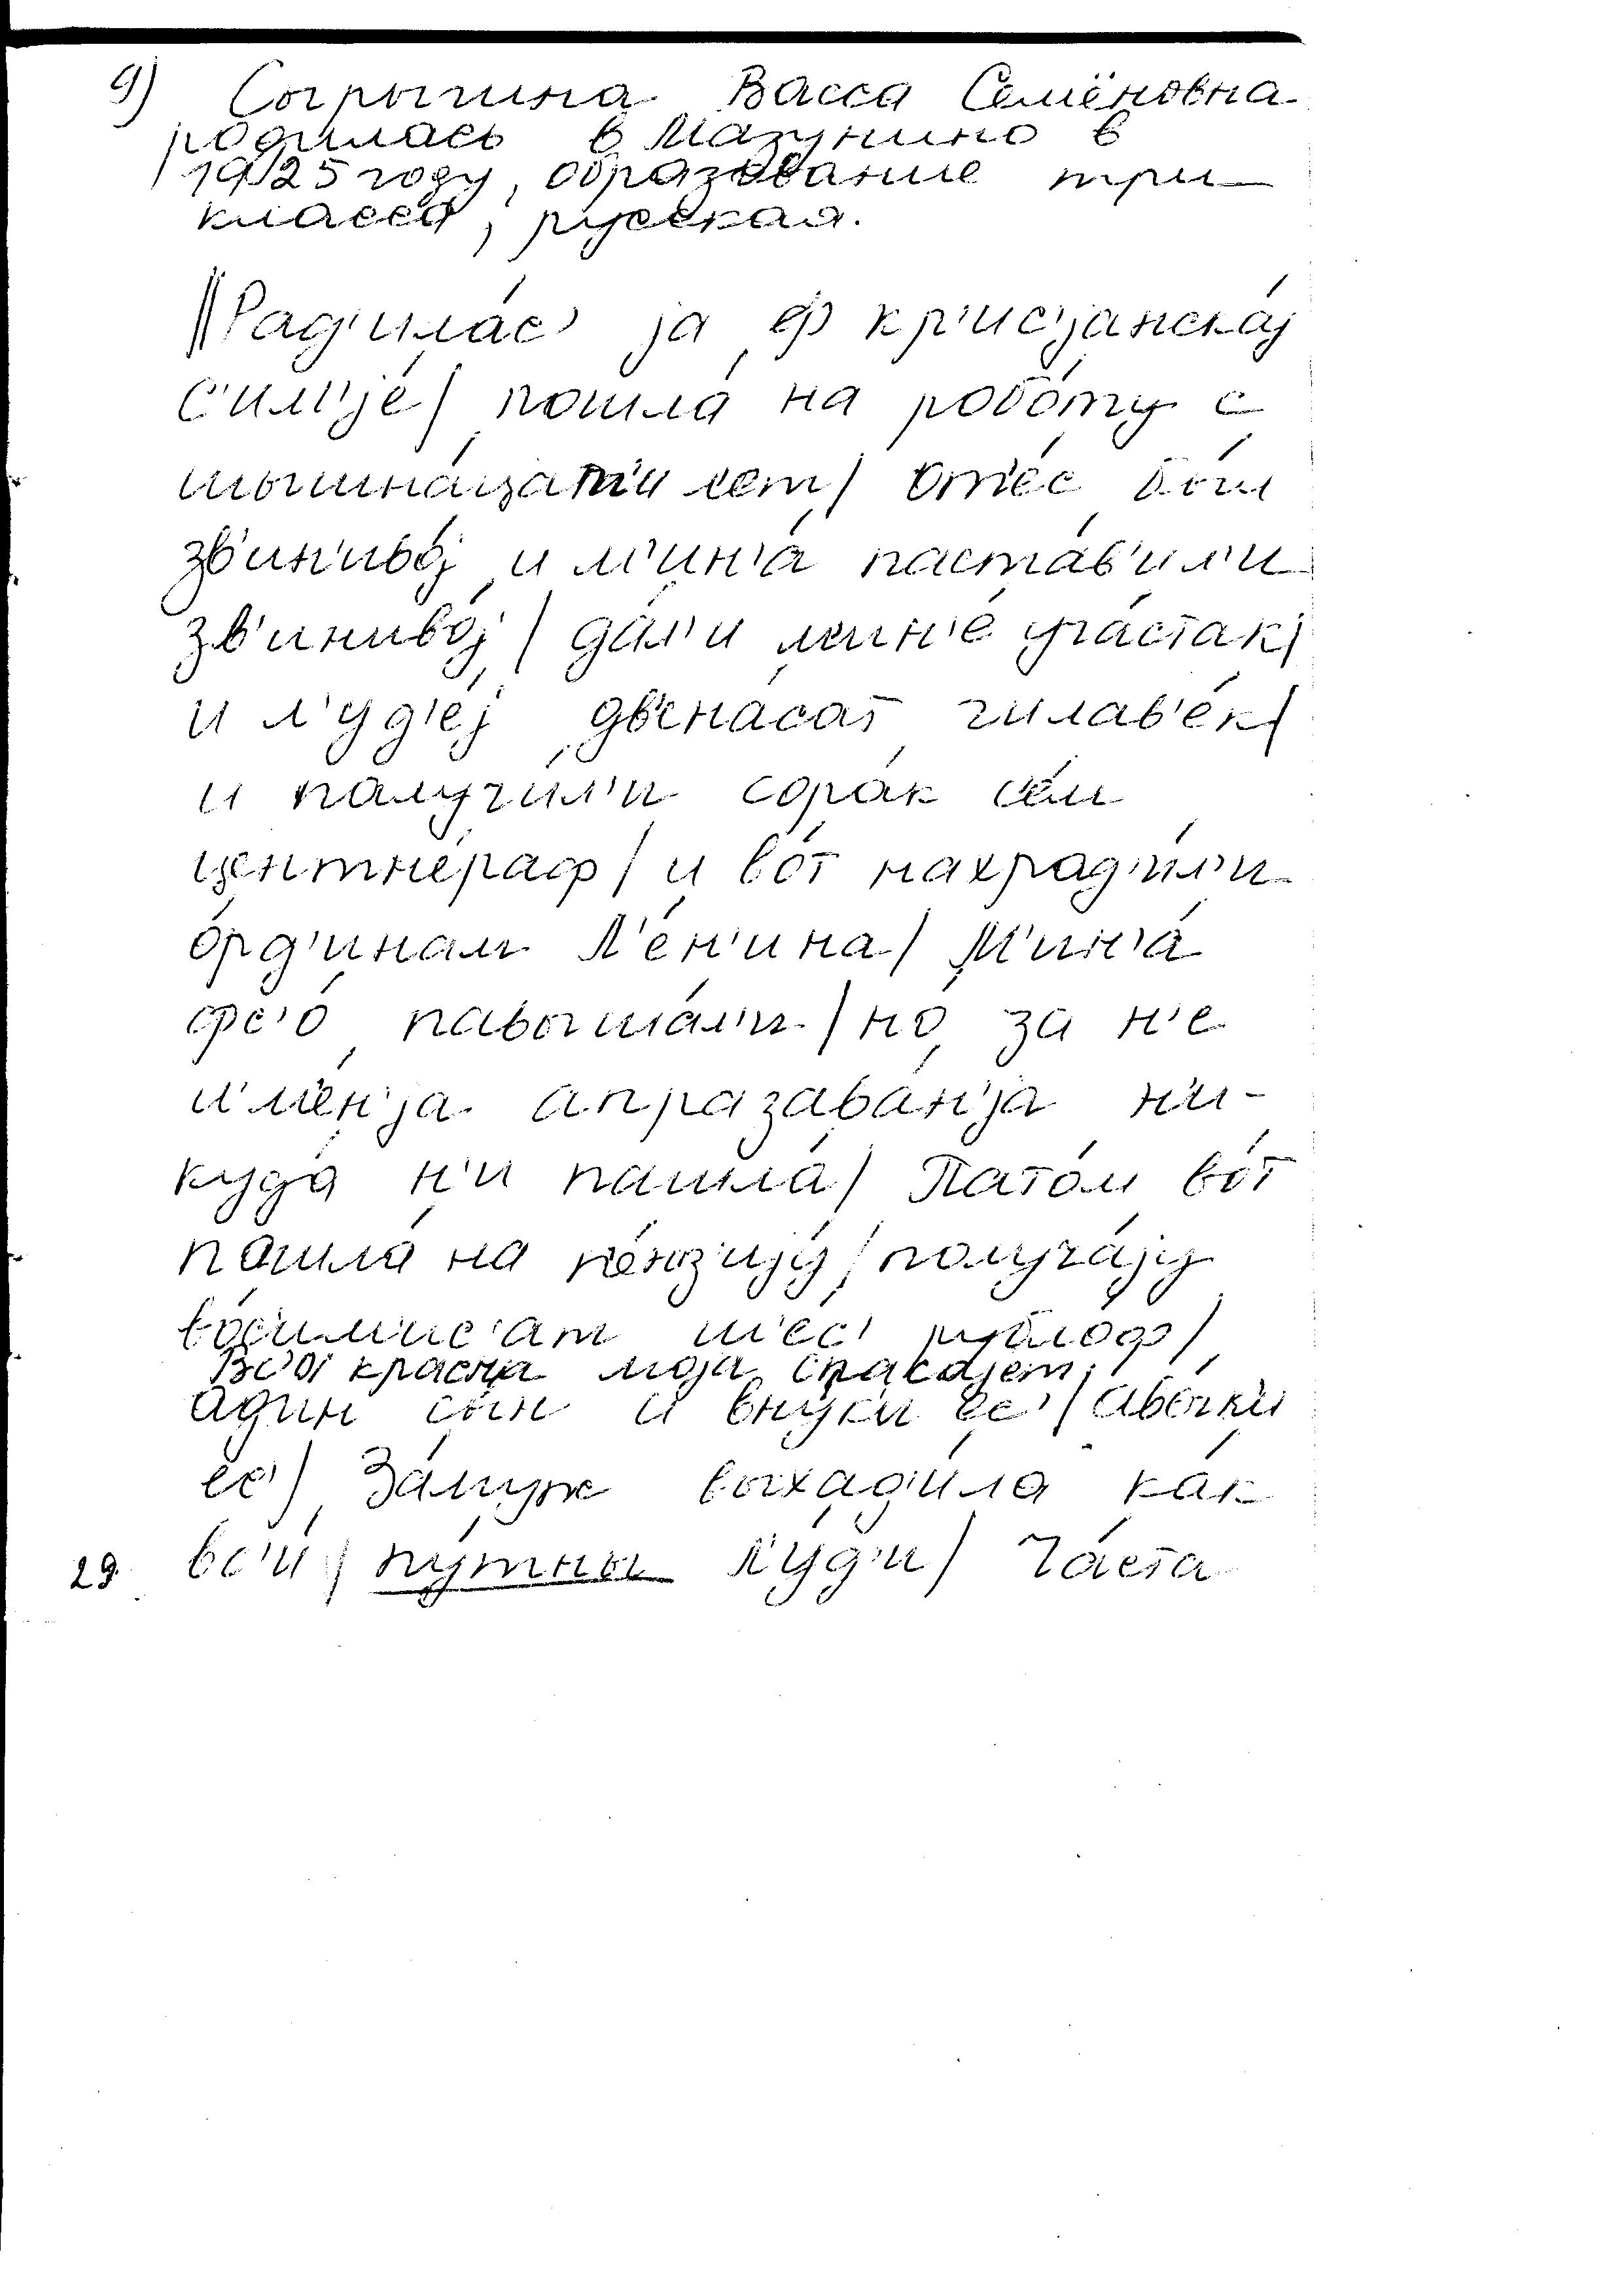 9) Согрышна Васса Семёновна
родилась в Мазунино в
1925 году, образование три
класса, русская.
‖Рад'ила́с' ја ф кр'ис'јанскај
с'им'је́/ пошла́ на робо́ту с
шышна́цат'и лет/ оте́с бы́л
зв'ин'иво́ј и м'ин'а́ паста́в'ил'и
зв'иниво́ј/ да́л'и мин'е́ уча́стак/
и л'уд'е́ј двена́сат чилав'е́к/
и палучи́л'и со́рак се́м
центне́раф/ и во́т нахрад'и́л'и
о́рд'инам Л'е́н'ина/ М'ин'а́
фс'о́ павыша́л'и/ но́ за н'е
им'е́н'ја апразава́н'ја н'и-
куда́ н'и пашла́/ Пато́м во́т
пошла́ на пе́нз'ију/ получа́ју
во́с'им'ис'ат ш'ес' рубло́ф/
Вс'о краса моја спаса́јет/
ади́н сы́н и вну́к'и јес'/ аве́чк'и
јес'/ За́муж выхад'и́ла ка́к
29. вс'и́/ пу́тны л'у́д'и/ Ча́ста